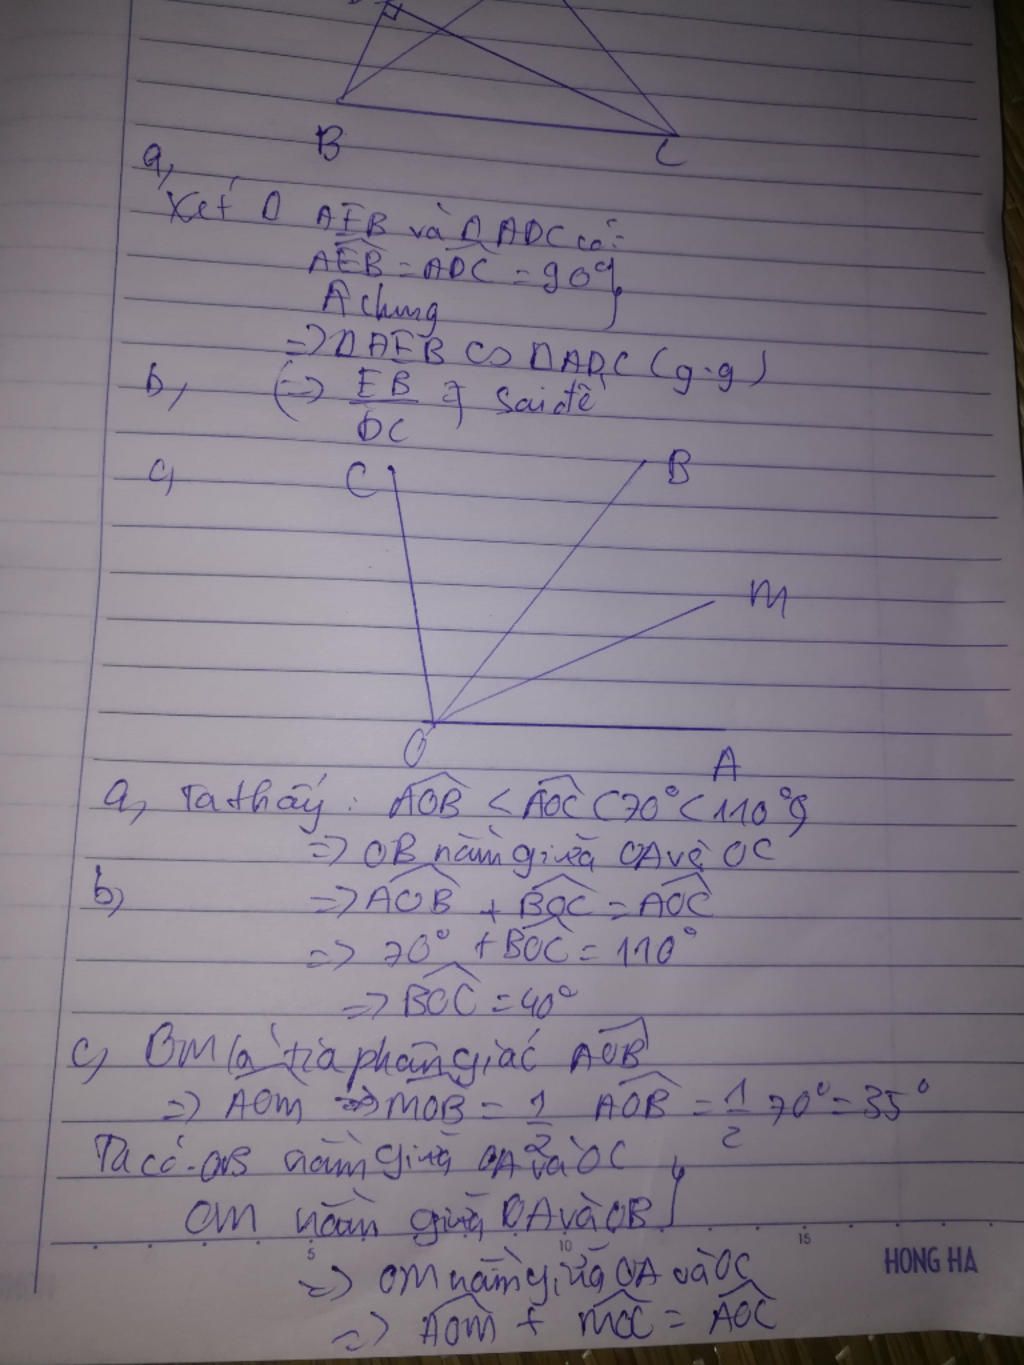 B
C
a,
Xét Δ AEB và Δ ADC có:
AEB = ADC = 90°
Â chung
=> Δ AEB ∽ Δ ADC (g.g)
b, (=> EB/DC Sai đề
c,
C
B
M
O
A
a, Ta thấy: AOB < AOC (70° < 110°)
=> OB nằm giữa OA và OC
b) => AOB + BOC = AOC
=> 70° + BOC = 110°
=> BOC = 40°
c, OM là tia phân giác AOB
=> AOM => MOB = 1/2 AOB = 1/2 70° = 35°
Ta có OB nằm giữa OA và OC
OM nằm giữa OA và OB
5 10 15
HONG HA
=> OM nằm giữa OA và OC
=> AOM + MOC = AOC